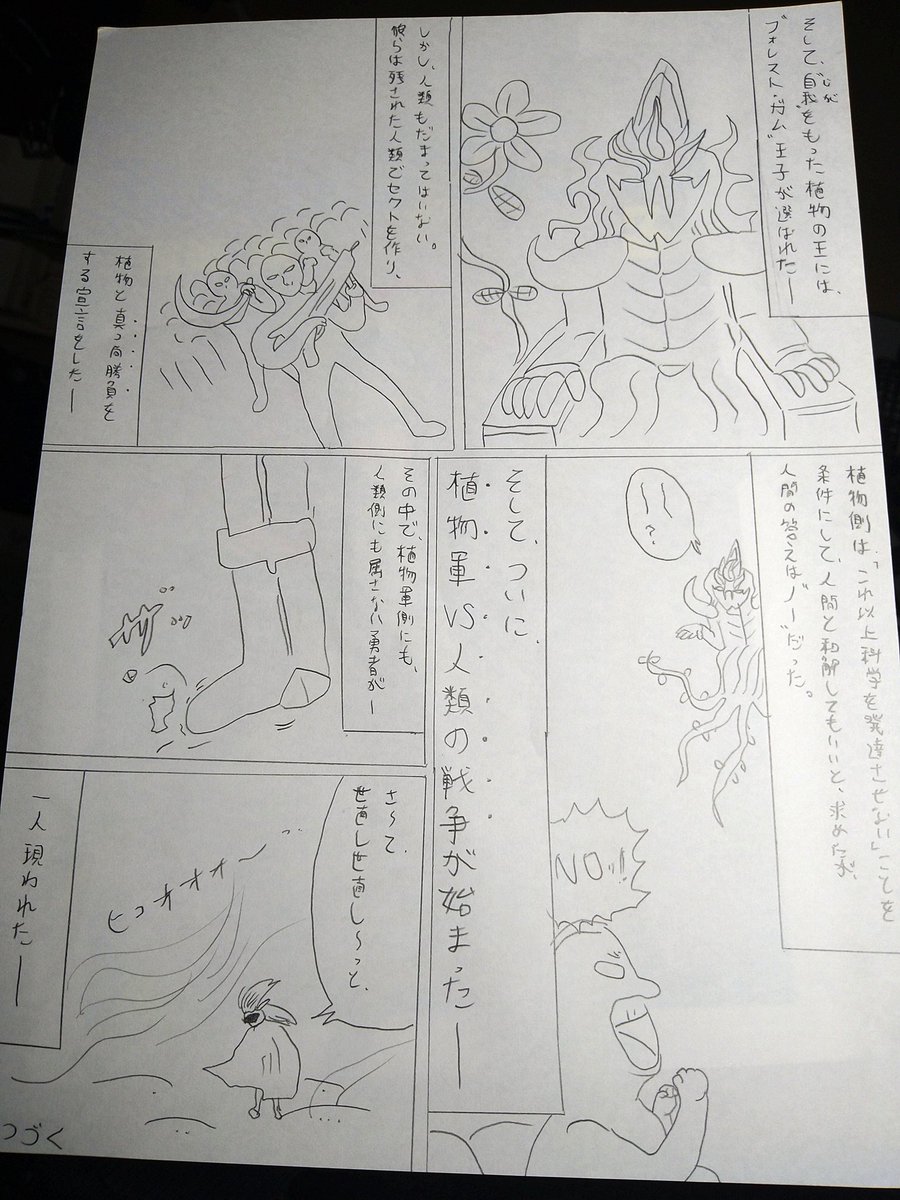 そして、"自我"をもった植物の王には、
じが
"フォレスト・ガム"王子が選ばれた――
しかし、人類もだまってはいない。
彼らは残された人類でセクトを作り、
植物と真っ向勝負を
する宣言をした――
植物側は、「これ以上科学を発達させない」ことを
条件にして、人間と和解してもいいと、求めたが、
人間の答えは"ノー"だった。
?
NO!!
そして、ついに、
植物軍VS人類の戦争が始まった――
その中で、植物軍側にも、
人類側にも属さない勇者が――
ザ
さ〜て、
世直し世直し〜っと、
ヒュオオオ〜
一人現われた――
つづく